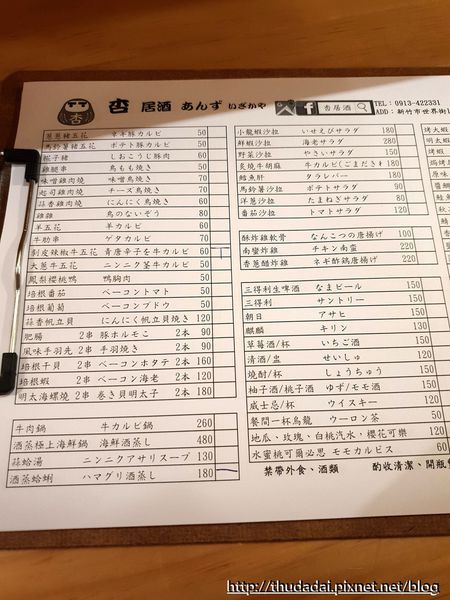 杏 居酒 あんず いざかや f 杏居酒 TEL: 0913-422331
ADD: 新竹市世界街1
蔥蔥豬五花 ネギ豚カルビ 50
馬鈴薯豬五花 ポテト豚カルビ 50
糀子豬 しおこうじ豚肉 60
雞腿串 鳥もも焼き 50
味噌雞肉燒 味噌鳥焼き 70
起司雞肉燒 チーズ鳥焼き 70
蒜香雞肉燒 にんにく鳥焼き 60
雞雜 鳥のないぞう 80
羊五花 羊カルビ 60
牛肋串 ゲタカルビ 70
剝皮辣椒牛五花 青唐辛子を牛カルビ 60
大蔥牛五花 ニンニク茎牛カルビ 50
鳳梨櫻桃鴨 鴨胸肉 50
培根番茄 ベーコントマト 50
培根葡萄 ベーコンブドウ 50
蒜香帆立貝 にんにく帆立焼き 120
肥腸 2串 豚ホルモこ 2本 90
風味手羽先 2串 手羽焼き 2本 90
培根干貝 2串 ベーコンホタテ 2本 160
培根蝦 2串 ベーコン海老 2本 120
明太海螺燒 2串 巻き貝明太子 2本 180
牛肉鍋 牛カルビ鍋 260
酒蒸極上海鮮鍋 海鮮酒蒸し 480
蒜蛤湯 ニンニクアサリスープ 130
酒蒸蛤蜊 ハマグリ酒蒸し 180
小龍蝦沙拉 いせえびサラダ 180
鮮蝦沙拉 海老サラダ 280
野菜沙拉 やさいサラダ 150
炙燒牛胡麻 牛カルビ(ごまだき 180
鱈魚肝 タラレバー 180
馬鈴薯沙拉 ポテトサラダ 90
洋蔥沙拉 たまねぎサラダ 80
番茄沙拉 トマトサラダ 120
酥炸雞軟骨 なんこつの唐揚げ 100
南蠻炸雞 チキン南蛮 220
香蔥醋炸雞 ネギ酢鶏唐揚げ 220
三得利生啤酒 なまビール 150
三得利 サントリー 150
朝日 アサヒ 150
麒麟 キリン 130
草莓酒/杯 いちご酒 150
清酒/盅 せいしゅ 150
燒酎/杯 しょうちゅう 150
柚子酒/桃子酒 ゆず/モモ酒 150
威士忌/杯 ウイスキー 120
餐間一杯烏龍 ウーロン茶 50
地瓜、玫瑰、白桃汽水,櫻花可樂 120
水蜜桃可爾必思 モモカルピス 60
禁帶外食、酒類 酌收清潔、開瓶
http://thudadai.pixnet.net/blog